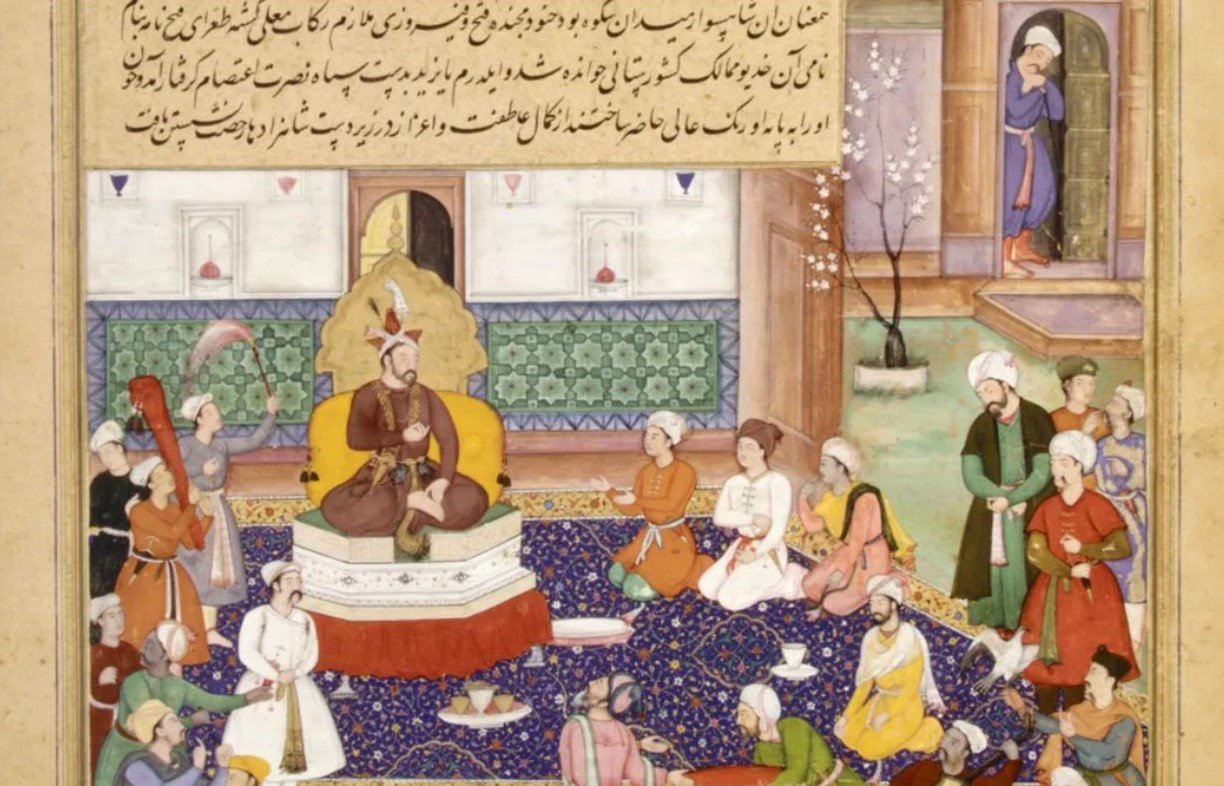 همعنان آن شاهسوار میدان شکوه بود جنود مجنده فتح و فیروزی ملازم رکاب معلی کشته طغرای فتح نامه بنام
نامی آن خدیو ممالک کشورستانی خوانده شد و ایلدرم بایزید بدست سپاه نصرت اعتصام گرفتار آمد و چون
او را به پایه اورنک عالی حاضر ساختند از کمال عاطفت و اعزاز در زیر دست شاهزادها رخصت نشستن یافت